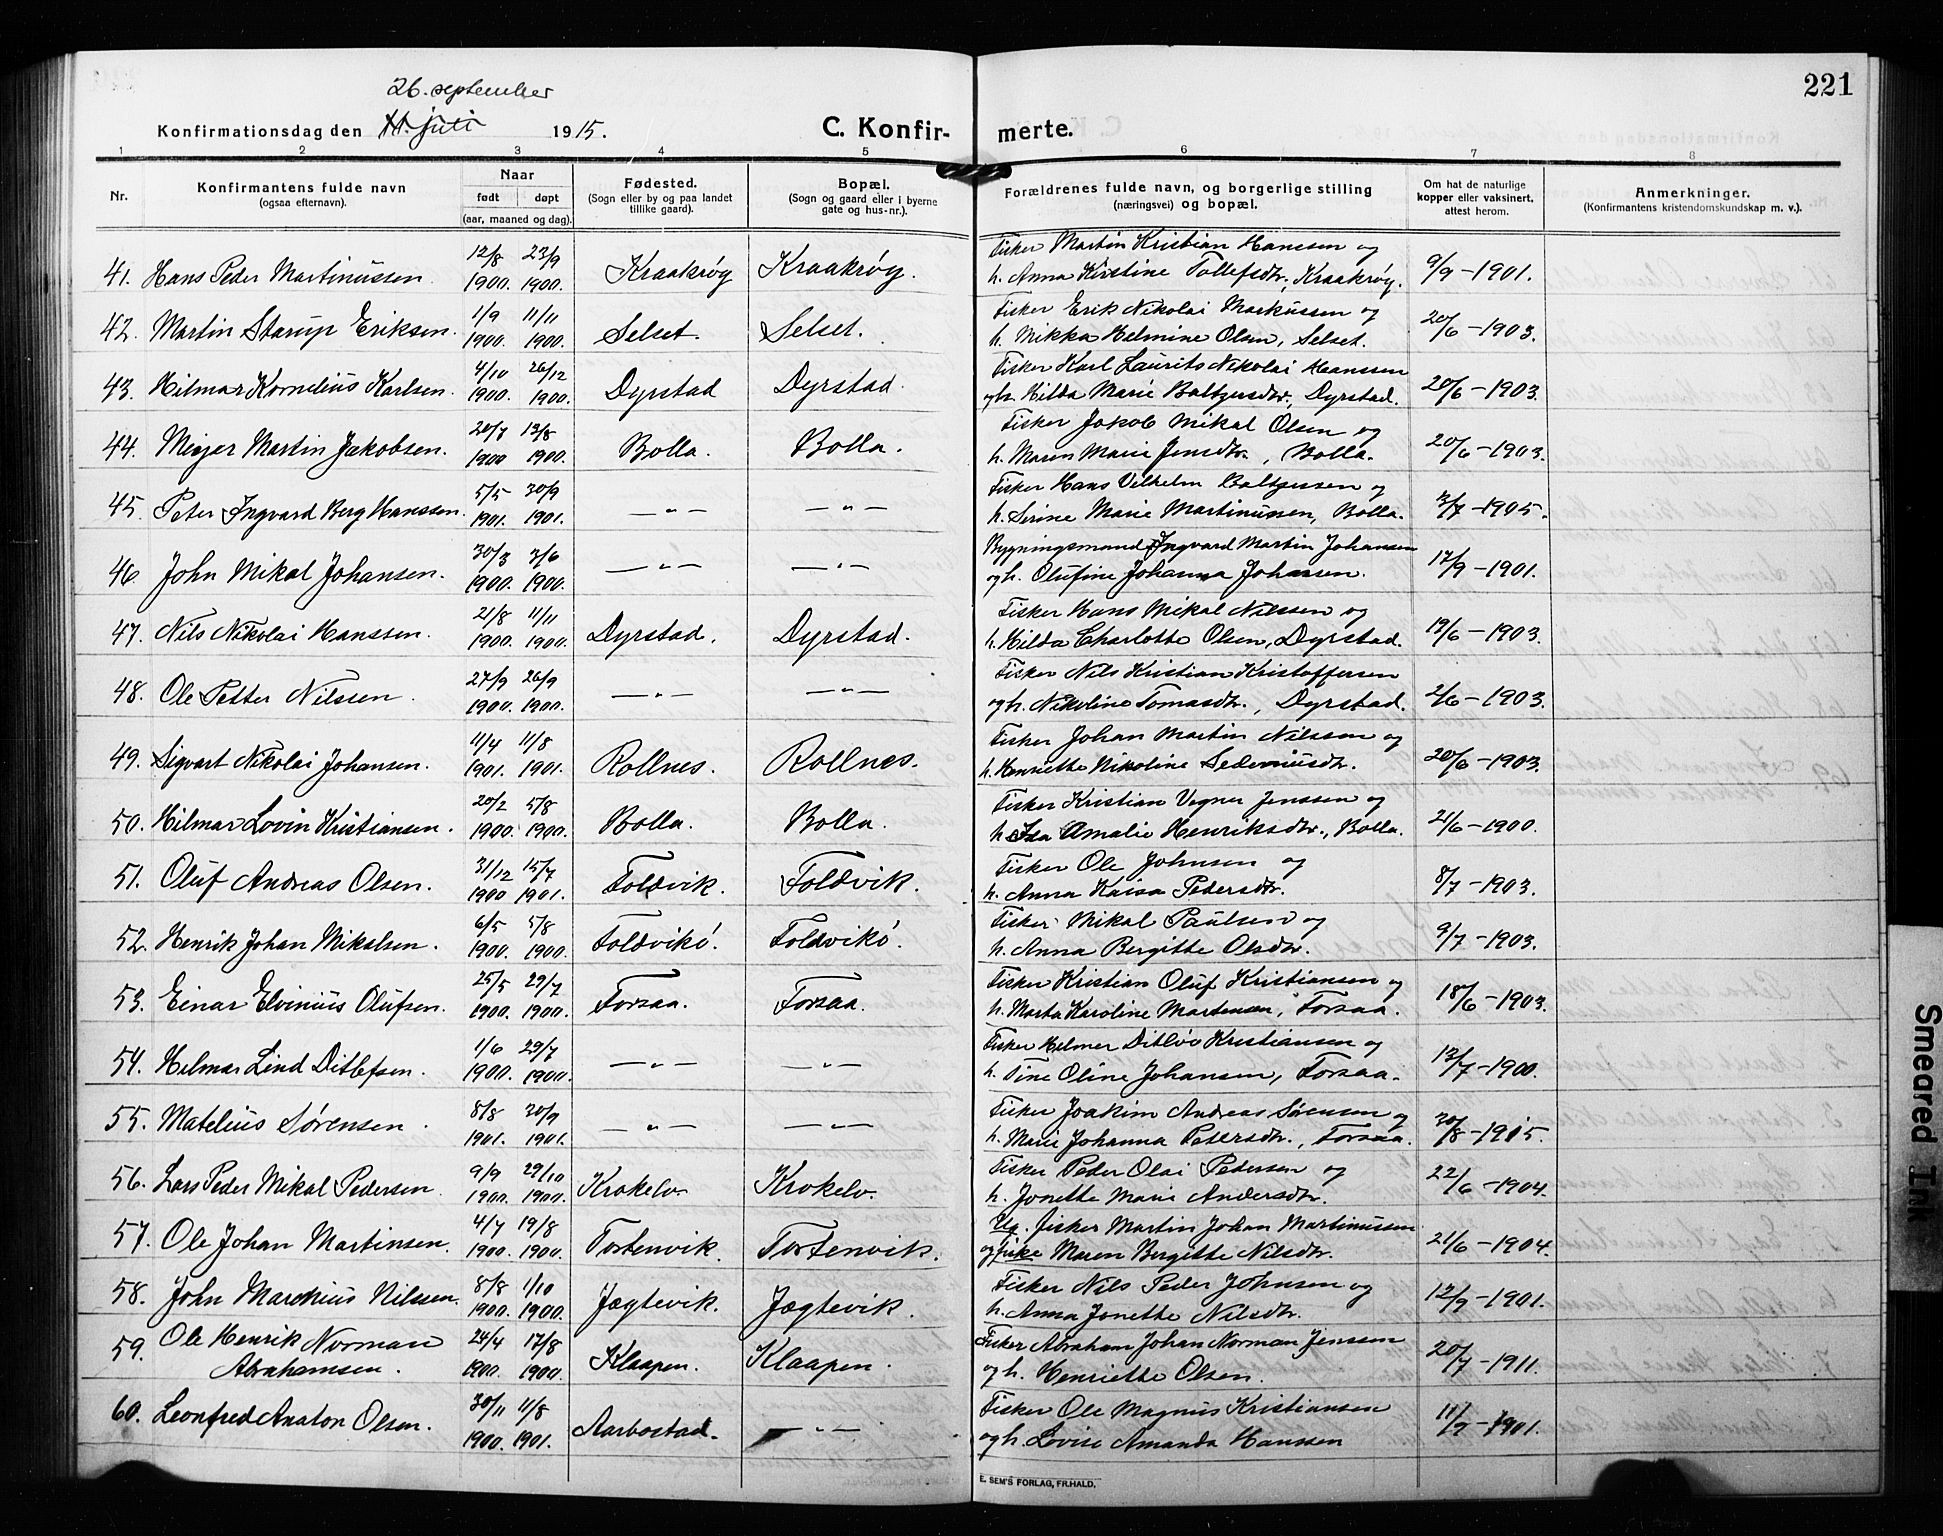 221
26. september
Konfirmationsdag den 11. juli 1915. C. Konfir- merte.
1 2 3 4 5 6 7 8
Nr. Konfirmantens fulde navn (ogsaa efternavn). Naar født døpt (aar, maaned og dag). Fødested. (Sogn eller by og paa landet tillike gaard). Bopæl. (Sogn og gaard eller i byerne gate og hus-nr.). Forældrenes fulde navn, og borgerlige stilling (næringsvei) og bopæl. Om hat de naturlige kopper eller vaksinert, attest herom. Anmerkninger. (Konfirmantens kristendomskundskap m. v.).
12/8 23/9 Fisker Martin Kristian Hanssen og
41. Hans Peder Martinussen. 1900. 1900. Kraakrøy Kraakrøy. h. Anna Kirstine Tollefsdtr., Kraakrøy. 9/9-1901.
1/9 11/11 Fisker Erik Nikolai Markussen og
42. Martin Starup Eriksen. 1900. 1900. Selset. Selset. h. Mikka Helmine Olsen, Selset. 20/6-1903.
4/10 26/12 Fisker Karl Laurits Nikolai Hanssen
43. Hilmar Kornelius Karlsen. 1900. 1900. Dyrstad Dyrstad. og h. Hilda Marie Baltzersdtr., Dyrstad. 20/6-1903.
20/7 13/8 Fisker Jakob Mikal Olsen og
44. Meyer Martin Jakobsen. 1900 1900. Bolla. Bolla. h. Maren Marie Jensdtr., Bolla. 20/6-1903.
5/5 30/9 Fisker Hans Vilhelm Baltzersen og
45. Peter Ingvard Berg Hanssen. 1901. 1901. —"— —"— h. Serine Marie Martinussen, Bolla. 3/7-1905.
30/3 3/6 Bygningsmand Ingvard Martin Johansen
46. John Mikal Johansen. 1900. 1900. —"— —"— og h. Olufine Johanna Johansen. 17/9-1901.
21/8 11/11 Fisker Hans Mikal Nilssen og
47. Nils Nikolai Hanssen. 1900. 1900. Dyrstad. Dyrstad. h. Hilda Charlotte Olsen, Dyrstad. 19/6-1903.
27/9 26/9 Fisker Nils Kristian Kristoffersen
48. Ole Petter Nilssen. 1900. 1900. —"— —"— og h. Nikoline Tomasdtr., Dyrstad. 2/6-1903.
11/4 11/8 Fisker Johan Martin Nilssen og
49. Sigvart Nikolai Johansen. 1901. 1901. Rollnes. Rollnes. h. Henriette Nikoline Sedeniusdtr. 20/6-1903.
20/2 5/8 Fisker Kristian Vegner Jenssen og
50. Hilmar Lovin Kristiansen. 1900. 1900. Bolla. Bolla. h. Amalie Henriksdtr., Bolla. 21/6-1900.
31/12 15/7 Fisker Ole Johnsen og
51. Oluf Andreas Olsen. 1900 1901. Foldvik. Foldvik. h. Anna Kaisa Pedersdtr. 8/7-1903.
6/5 5/8 Fisker Mikal Paulsen og
52. Henrik Johan Mikalsen. 1900. 1900. Foldvikø. Foldvikø. h. Anna Bergitte Olsdtr. 9/7-1903.
25/5 29/7 Fisker Kristian Oluf Kristiansen og
53. Einar Elvinius Olufsen. 1900. 1900. Forsaa. Forsaa. h. Marta Karoline Martensen, Forsaa. 18/6-1903.
1/6 29/7 Fisker Helmer Ditløv Kristiansen og
54. Helmar Lind Ditlefsen. 1900. 1900. —"— —"— h. Tine Oline Johansen, Forsaa. 13/7-1900.
8/8 30/9 Fisker Joakim Andreas Sørensen og
55. Matelius Sørensen. 1901. 1901. —"— —"— h. Marie Johanna Petersdtr., Forsaa. 30/8-1915.
9/9 29/10 Fisker Peder Olai Pedersen og
56. Lars Peder Mikal Pedersen. 1900. 1900. Krokelv. Krokelv. h. Jonette Marie Andersdtr. 22/6-1904.
4/7 19/8 Ug. fisker Martin Johan Martinussen
57. Ole Johan Martinsen. 1900. 1900. Tortenvik. Tortenvik. og pike Maren Bergitte Nilsdtr. 21/6-1904.
8/8 1/10 Fisker Nils Peder Johnsen og
58. John Marekius Nilssen. 1900. 1900. Jægtevik. Jægtevik. h. Anna Jonette Nilsdtr. 12/9-1901.
Ole Henrik Norman 24/4 17/8 Fisker Abraham Johan Norman Jenssen
59. Abrahamsen. 1900. 1900. Klaapen. Klaapen. og h. Henriette Olsen. 20/7-1911.
30/11 11/8 Fisker Ole Magnus Kristiansen
60. Leonfred Anaton Olsen. 1900. 1901. Aarbostad. —"— og h. Lovise Amanda Hanssen 11/7-1901.
E. SEM'S FORLAG, FR.HALD.
Smeared Ink